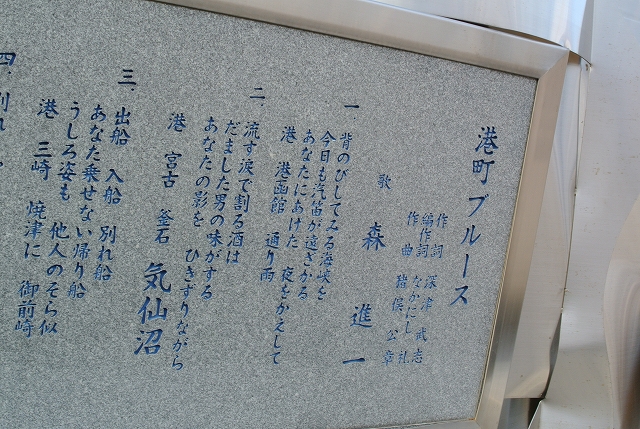 港町ブルース
作詞 深津 武志
編作詞 なかにし 礼
作曲 猪俣 公章
歌 森 進一
一 背のびしてみる海峡を
今日も汽笛が遠ざかる
あなたにあげた 夜をかえして
港 港函館 通り雨
二、流す涙で割る酒は
だました男の味がする
あなたの影を ひきずりながら
港 宮古 釜石 気仙沼
三、出船 入船 別れ船
あなた乗せない帰り船
うしろ姿も 他人のそら似
港 三崎 焼津に 御前崎
四、別れ